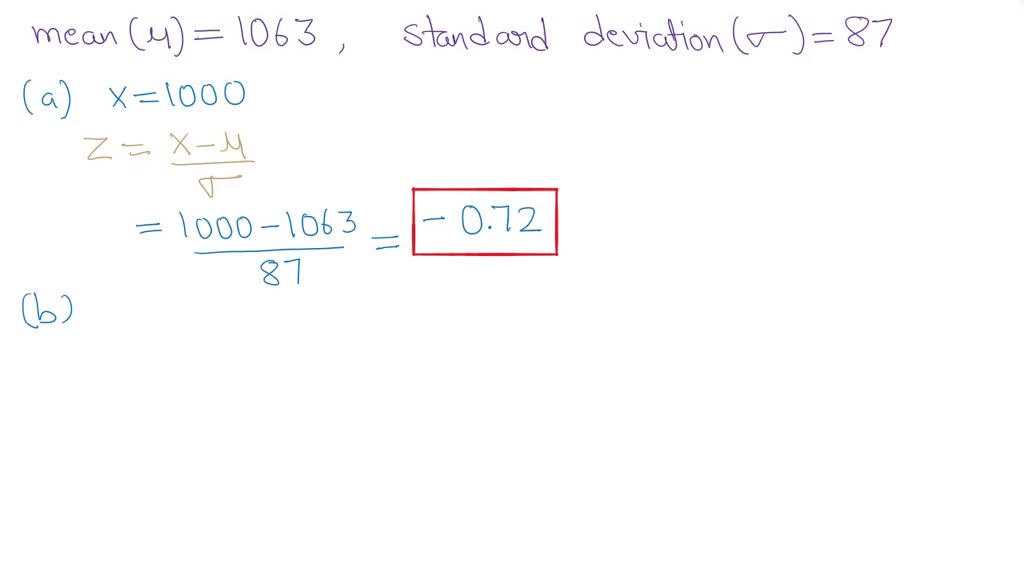 mean (μ) = 1063, standard deviation (σ) = 87
(a) x = 1000
z = x - μ / σ
= 1000 - 1063 / 87 = - 0.72
(b)